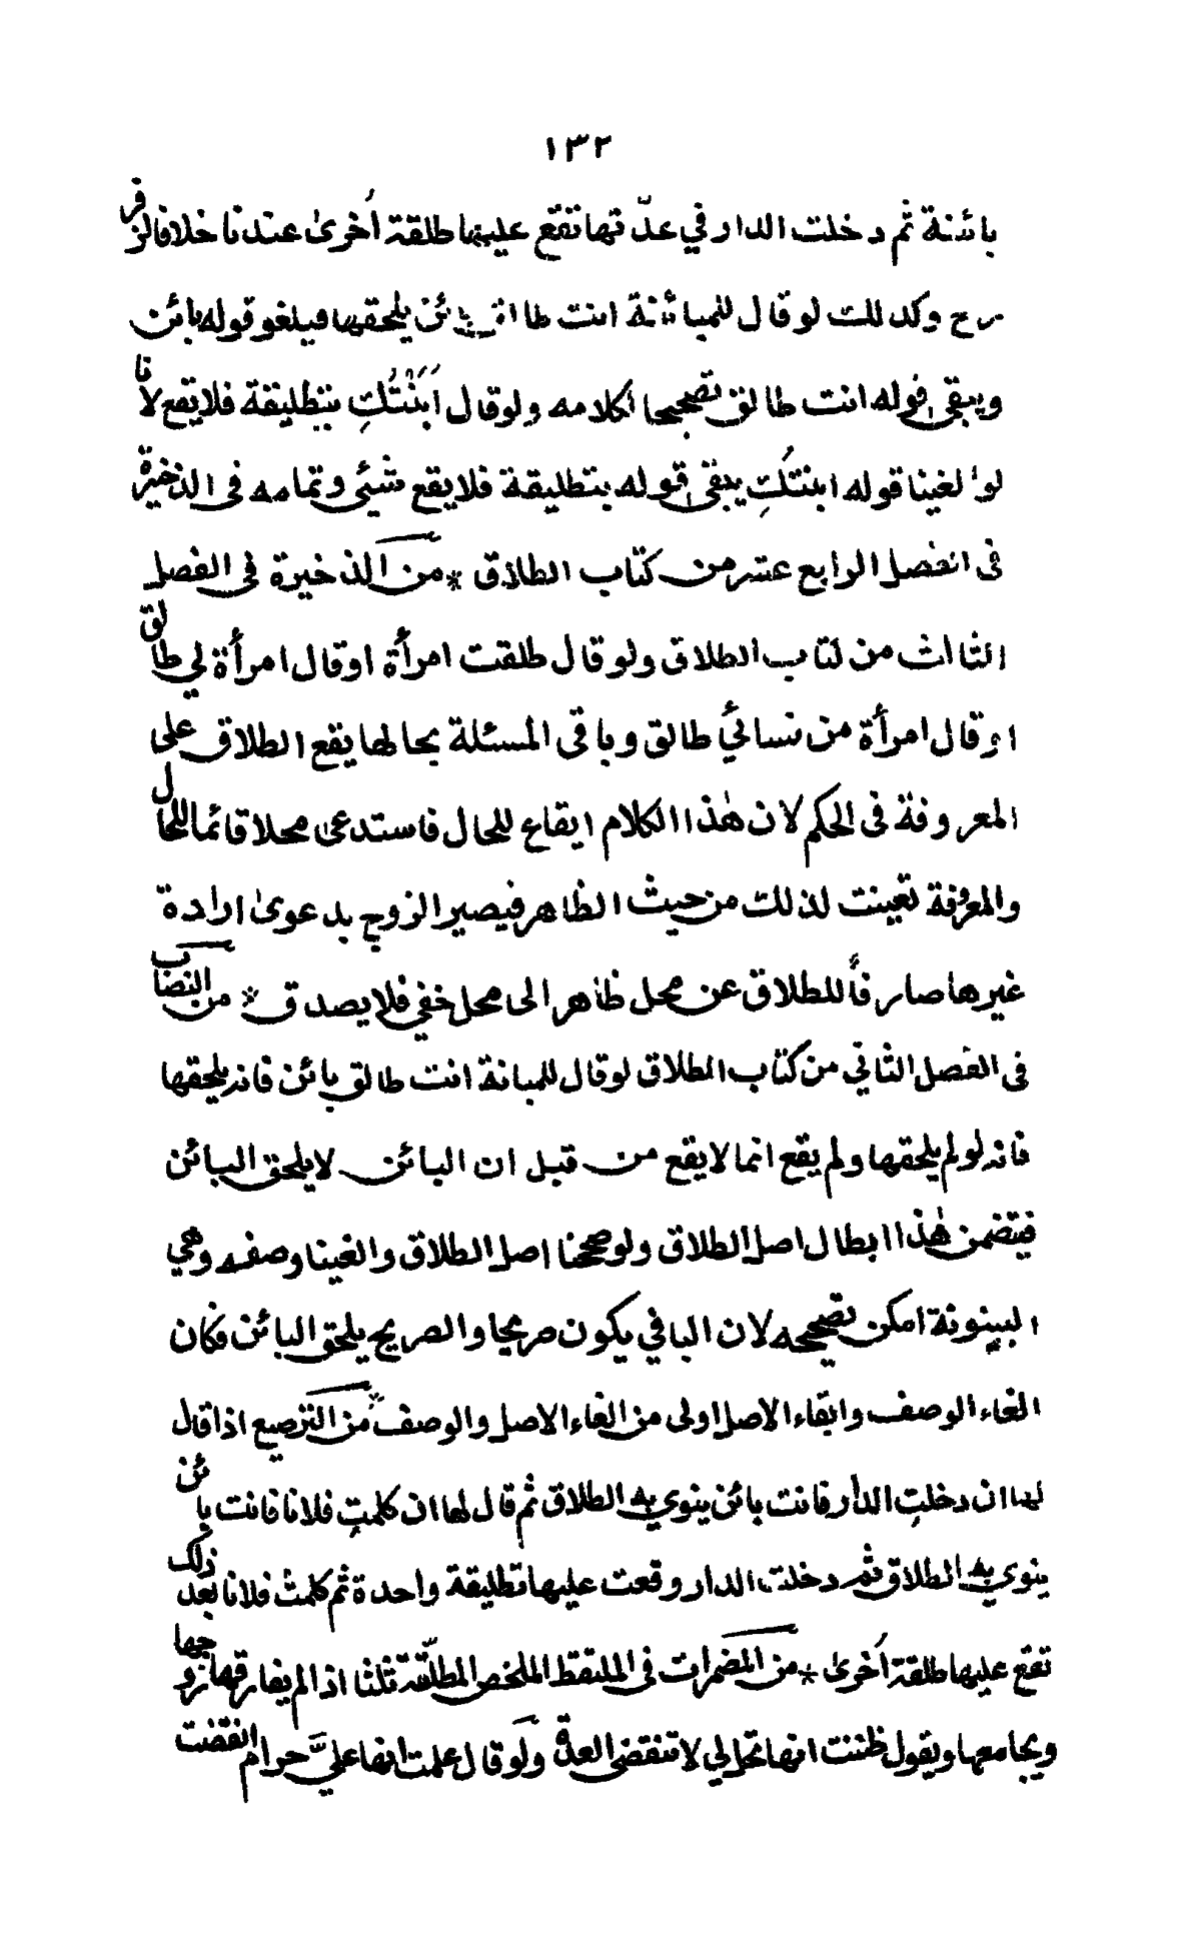 ١٣٢
بائنة ثم دخلت الدار في عدّتها تقع عليها طلقة أُخرىٰ عندنا خلافا لزفر
رح وكذلك لو قال للمبائنة انت طالق بائن يلحقها فيلغو قوله بائن
ويبقى قوله انت طالق تصحيحا لكلامه ولو قال أَبَنْتُكِ بتطليقة فلا يقع لانا
لو الغينا قوله ابنتُكِ يبقى قوله بتطليقة فلا يقع شئي وتمامه فى الذخيرة
فى الفصل الرابع عشر من كتاب الطلاق * من الذخيرة فى الفصل
الثالث من كتاب الطلاق ولو قال طلقت امرأة او قال امرأة لي طالق
او قال امرأة من نسائي طالق وباقى المسئلة بحالها يقع الطلاق على
المعروفة فى الحكم لان هٰذا الكلام ايقاع للحال فاستدعى محلا قائما للحال
والمعروفة تعينت لذلك من حيث الظاهر فيصير الزوج بدعوىٰ ارادة
غيرها صارفاً للطلاق عن محل ظاهر الى محل خفي فلا يصدق * من النصاب
فى الفصل الثاني من كتاب الطلاق لو قال للمبانة انت طالق بائن فانه يلحقها
فانه لو لم يلحقها ولم يقع انما لا يقع من قبل ان البائن لا يلحق البائن
فيتضمن هٰذا ابطال اصل الطلاق ولو صححنا اصل الطلاق والغينا وصفه وهي
البينونة امكن تصحيحه لان الباقي يكون صريحا والصريح يلحق البائن فكان
الغاء الوصف وابقاء الاصل اولى من الغاء الاصل والوصف * من الترصيع اذا قال
لها ان دخلتِ الدار فانت بائن ينوي به الطلاق ثم قال لها ان كلمتِ فلانا فانت بائن
ينوي به الطلاق ثم دخلت الدار وقعت عليها تطليقة واحدة ثم كلمت فلانا بعد ذلك
تقع عليها طلقة أُخرىٰ * من المضمرات فى الملتقط الملخص المطلّقة ثلثا اذا لم يفارقها زوجها
ويجامعها ويقول ظننت انها تحل لي لا تنقضى العدة ولو قال علمت انها عليَّ حرام انقضت